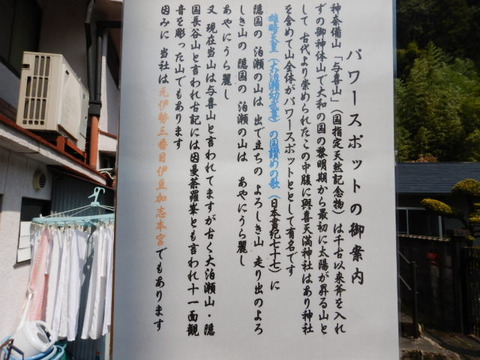 パワースポットの御案内
神奈備山「与喜山」（国指定天然記念物）は千古以来斧を入れ
ずの御神体山で大和の国の黎明期から最初に太陽が昇る山と
して古代より崇められたこの中腹に與喜天満神社はあり神社
を含めて山全体がパワースポットとして有名です
雄略天皇（大泊瀬幼武尊）の国讃めの歌（日本書紀七十七）に
隠国の 泊瀬の山は 出で立ちの よろしき山 走り出のよろ
しき山の 隠国の 泊瀬の山は あやにうら麗し
あやにうら麗し
又 現在当山は与喜山と言われてますが古く大泊瀬山・隠
国長谷山と言われ古記には因曼荼羅峯とも言われ十一面観
音を彫った山でもあります
因みに 当社は元伊勢三番目伊豆加志本宮でもあります